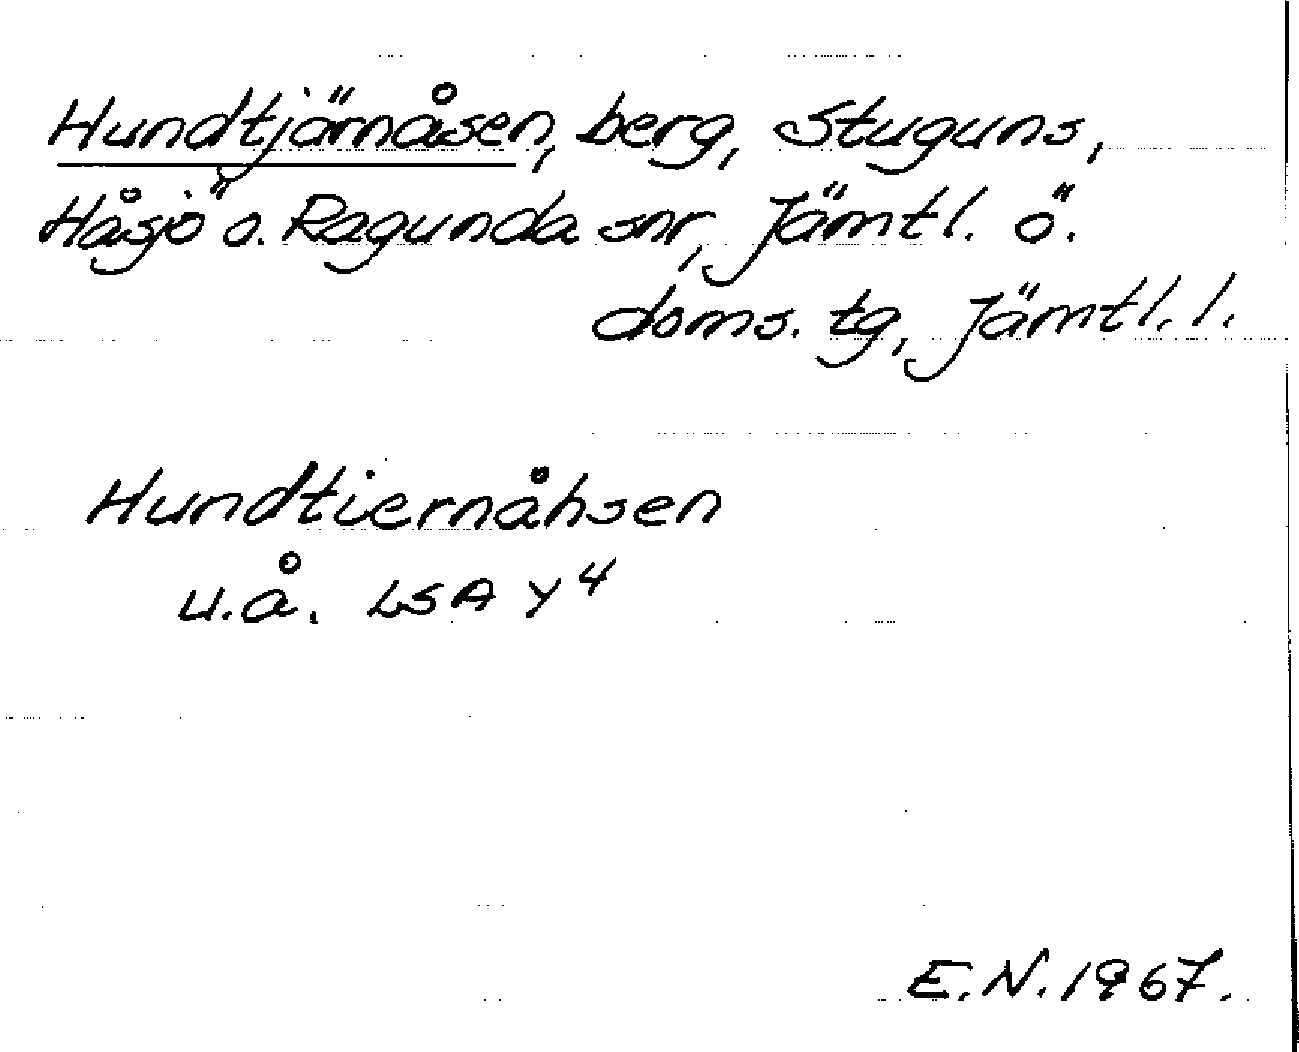 Hundtjärnåsen, berg, Stuguns,
Håsjö o. Ragunda snr, Jämtl. ö.
doms. tg, Jämtl. l.
Hundtiernåhsen
u.å. LSA Y4
E.N. 1967.